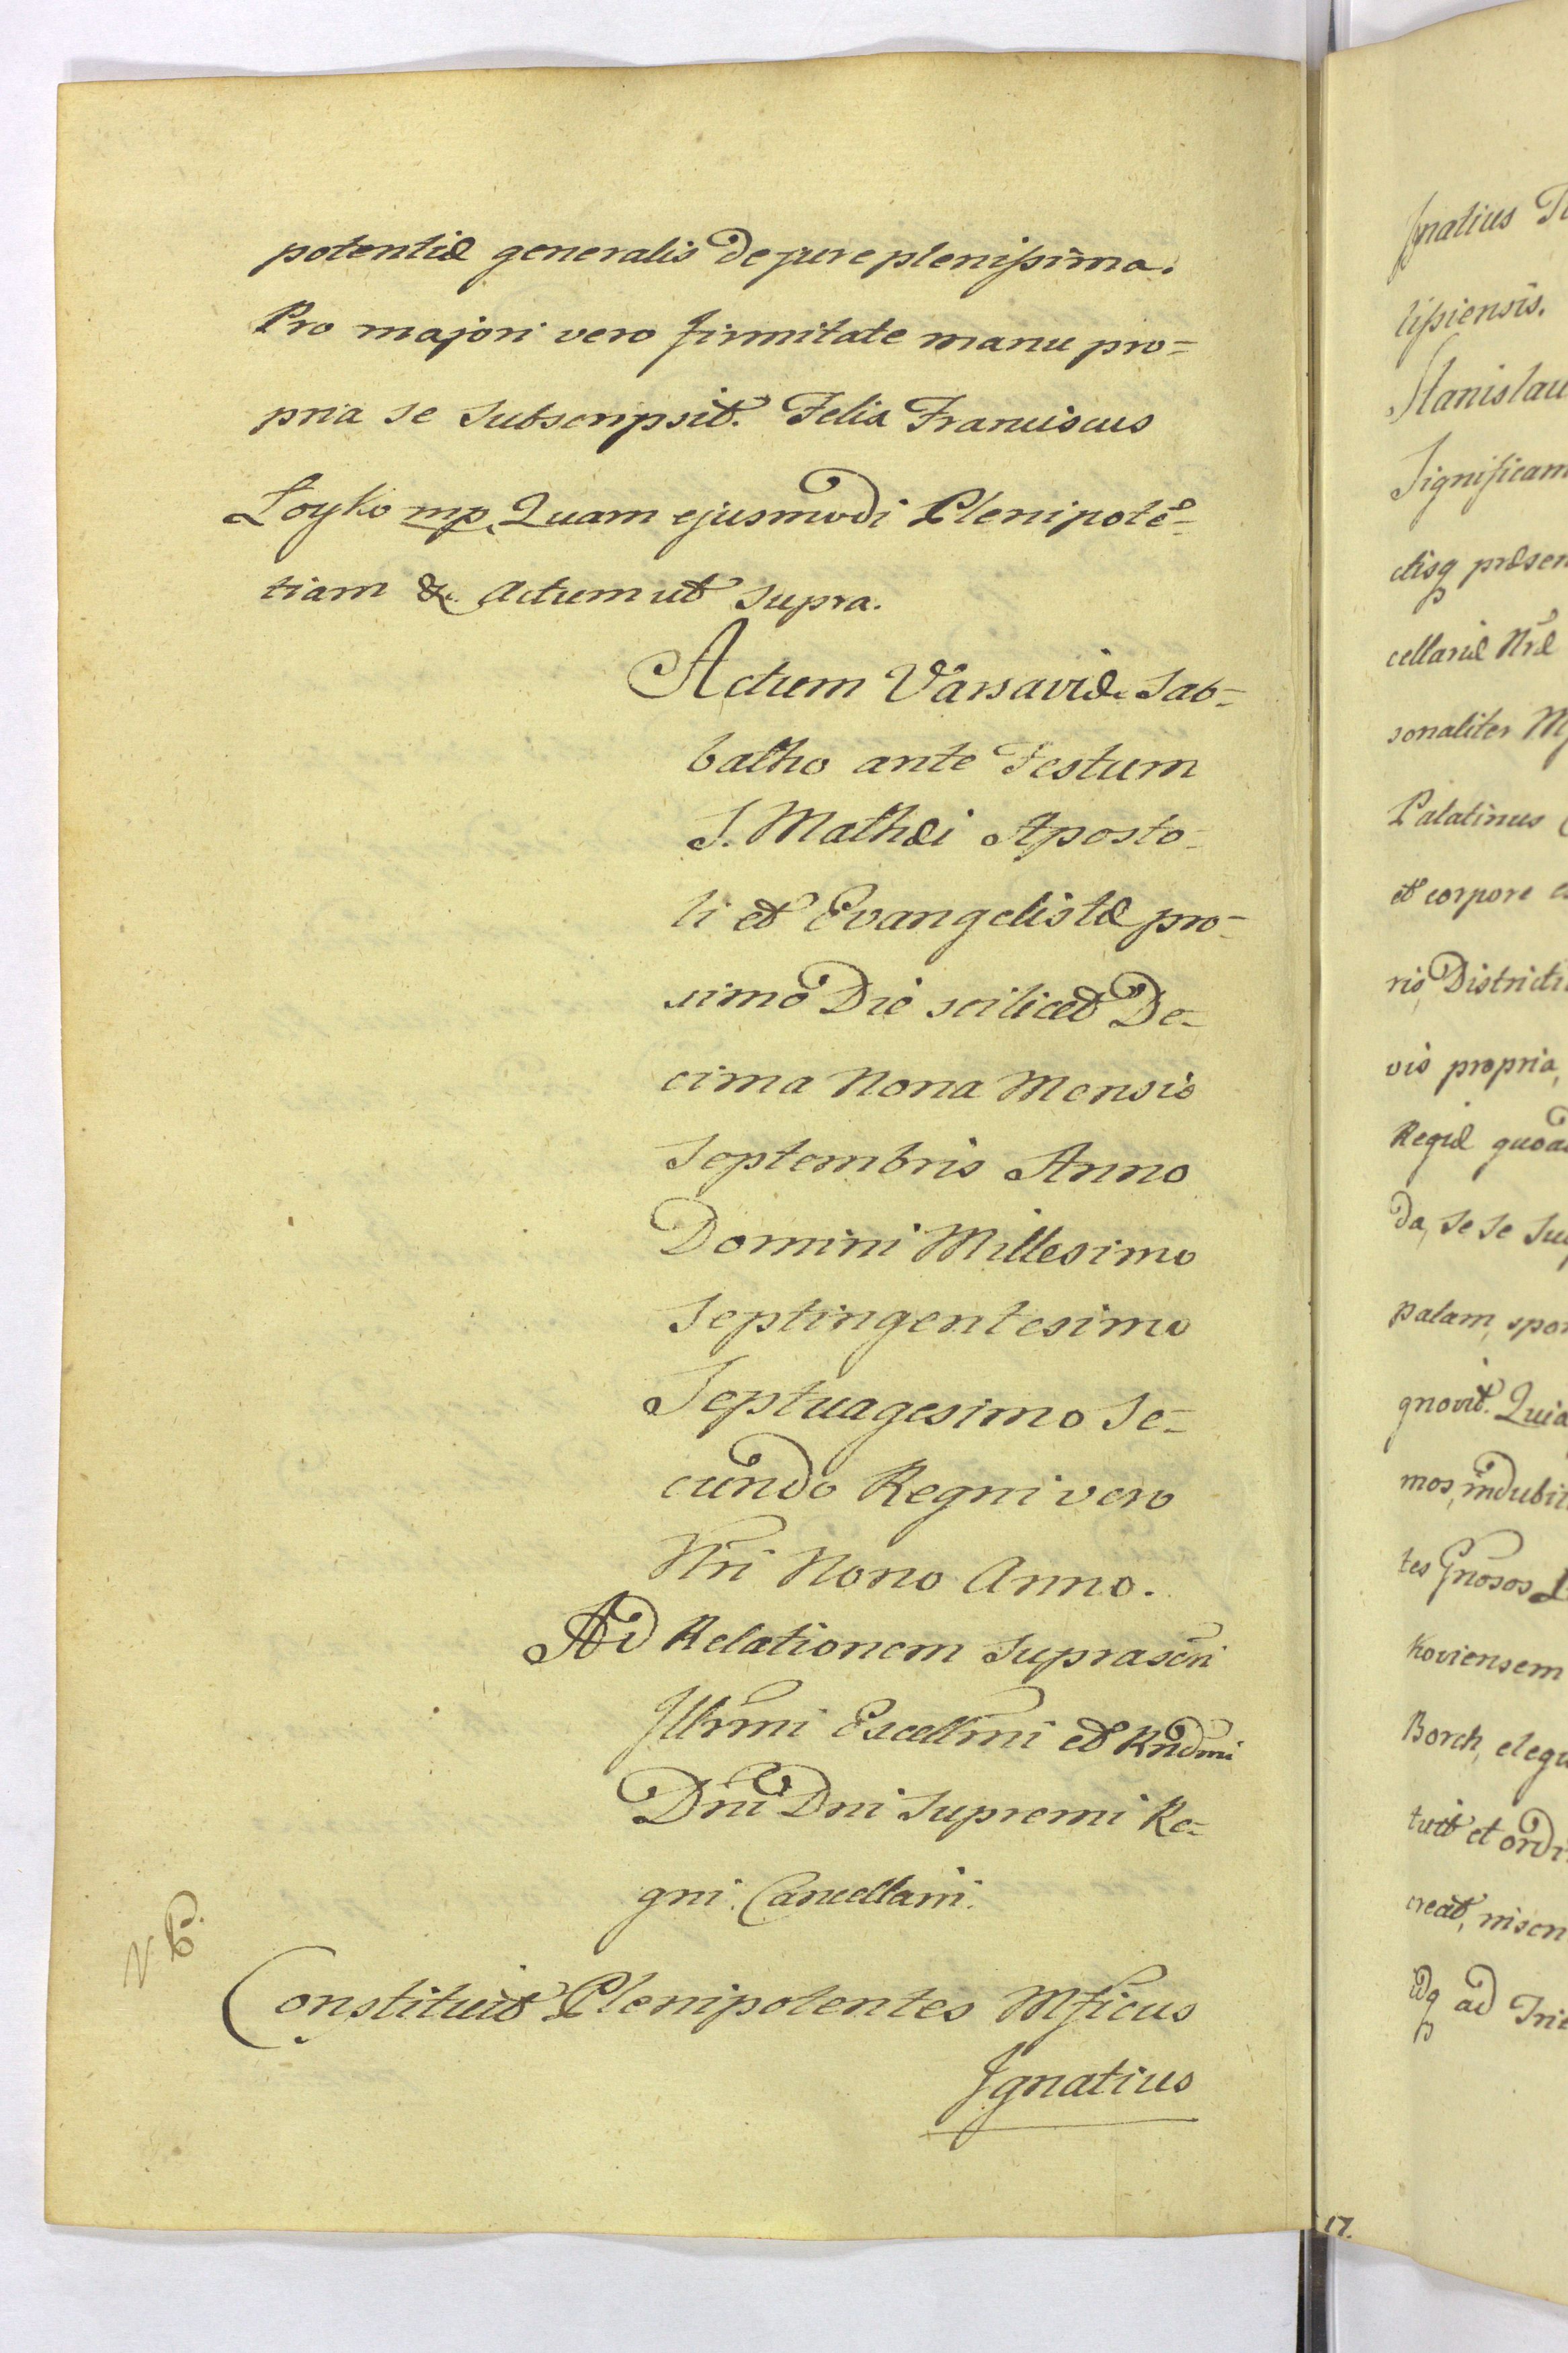 potentiæ generalis de jure plenissima.
Pro majori vero firmitate manu pro=
pria se subscripsit. Felix Franciscus
Łoyko mp. Quam ejusmodi Plenipotē=
tiam &. Actum ut supra.
Actum Varsaviæ Sab=
batho ante Festum
S. Mathæi Aposto=
li et Evangelistæ pro=
ximo Die scilicet De=
cima Nona Mensis
Septembris Anno
Domini Millesimo
Septingentesimo
Septuagesimo Se=
cundo Regni vero
Nri Nono Anno.
Ad Relationem suprascri
Illrmi Excellmi et Rndmi
Dni Dni Supremi Re=
gni Cancellarii.
N. P.
Constituit Plenipotentes Mficus
Ignatius
Ignatius
lissiensis.
Stanislau
Significam
ctisq præsen
cellariæ Nræ
sonaliter
Palatinus
et corpore
ris Districtu
vis propria,
Regiæ quoad
da, se se
palam, spon
gnovit. Quia
mos, indubit
tes Gnosos
koviensem
Borch, elegi
tuit et ordi
creat,
idq ad
17.